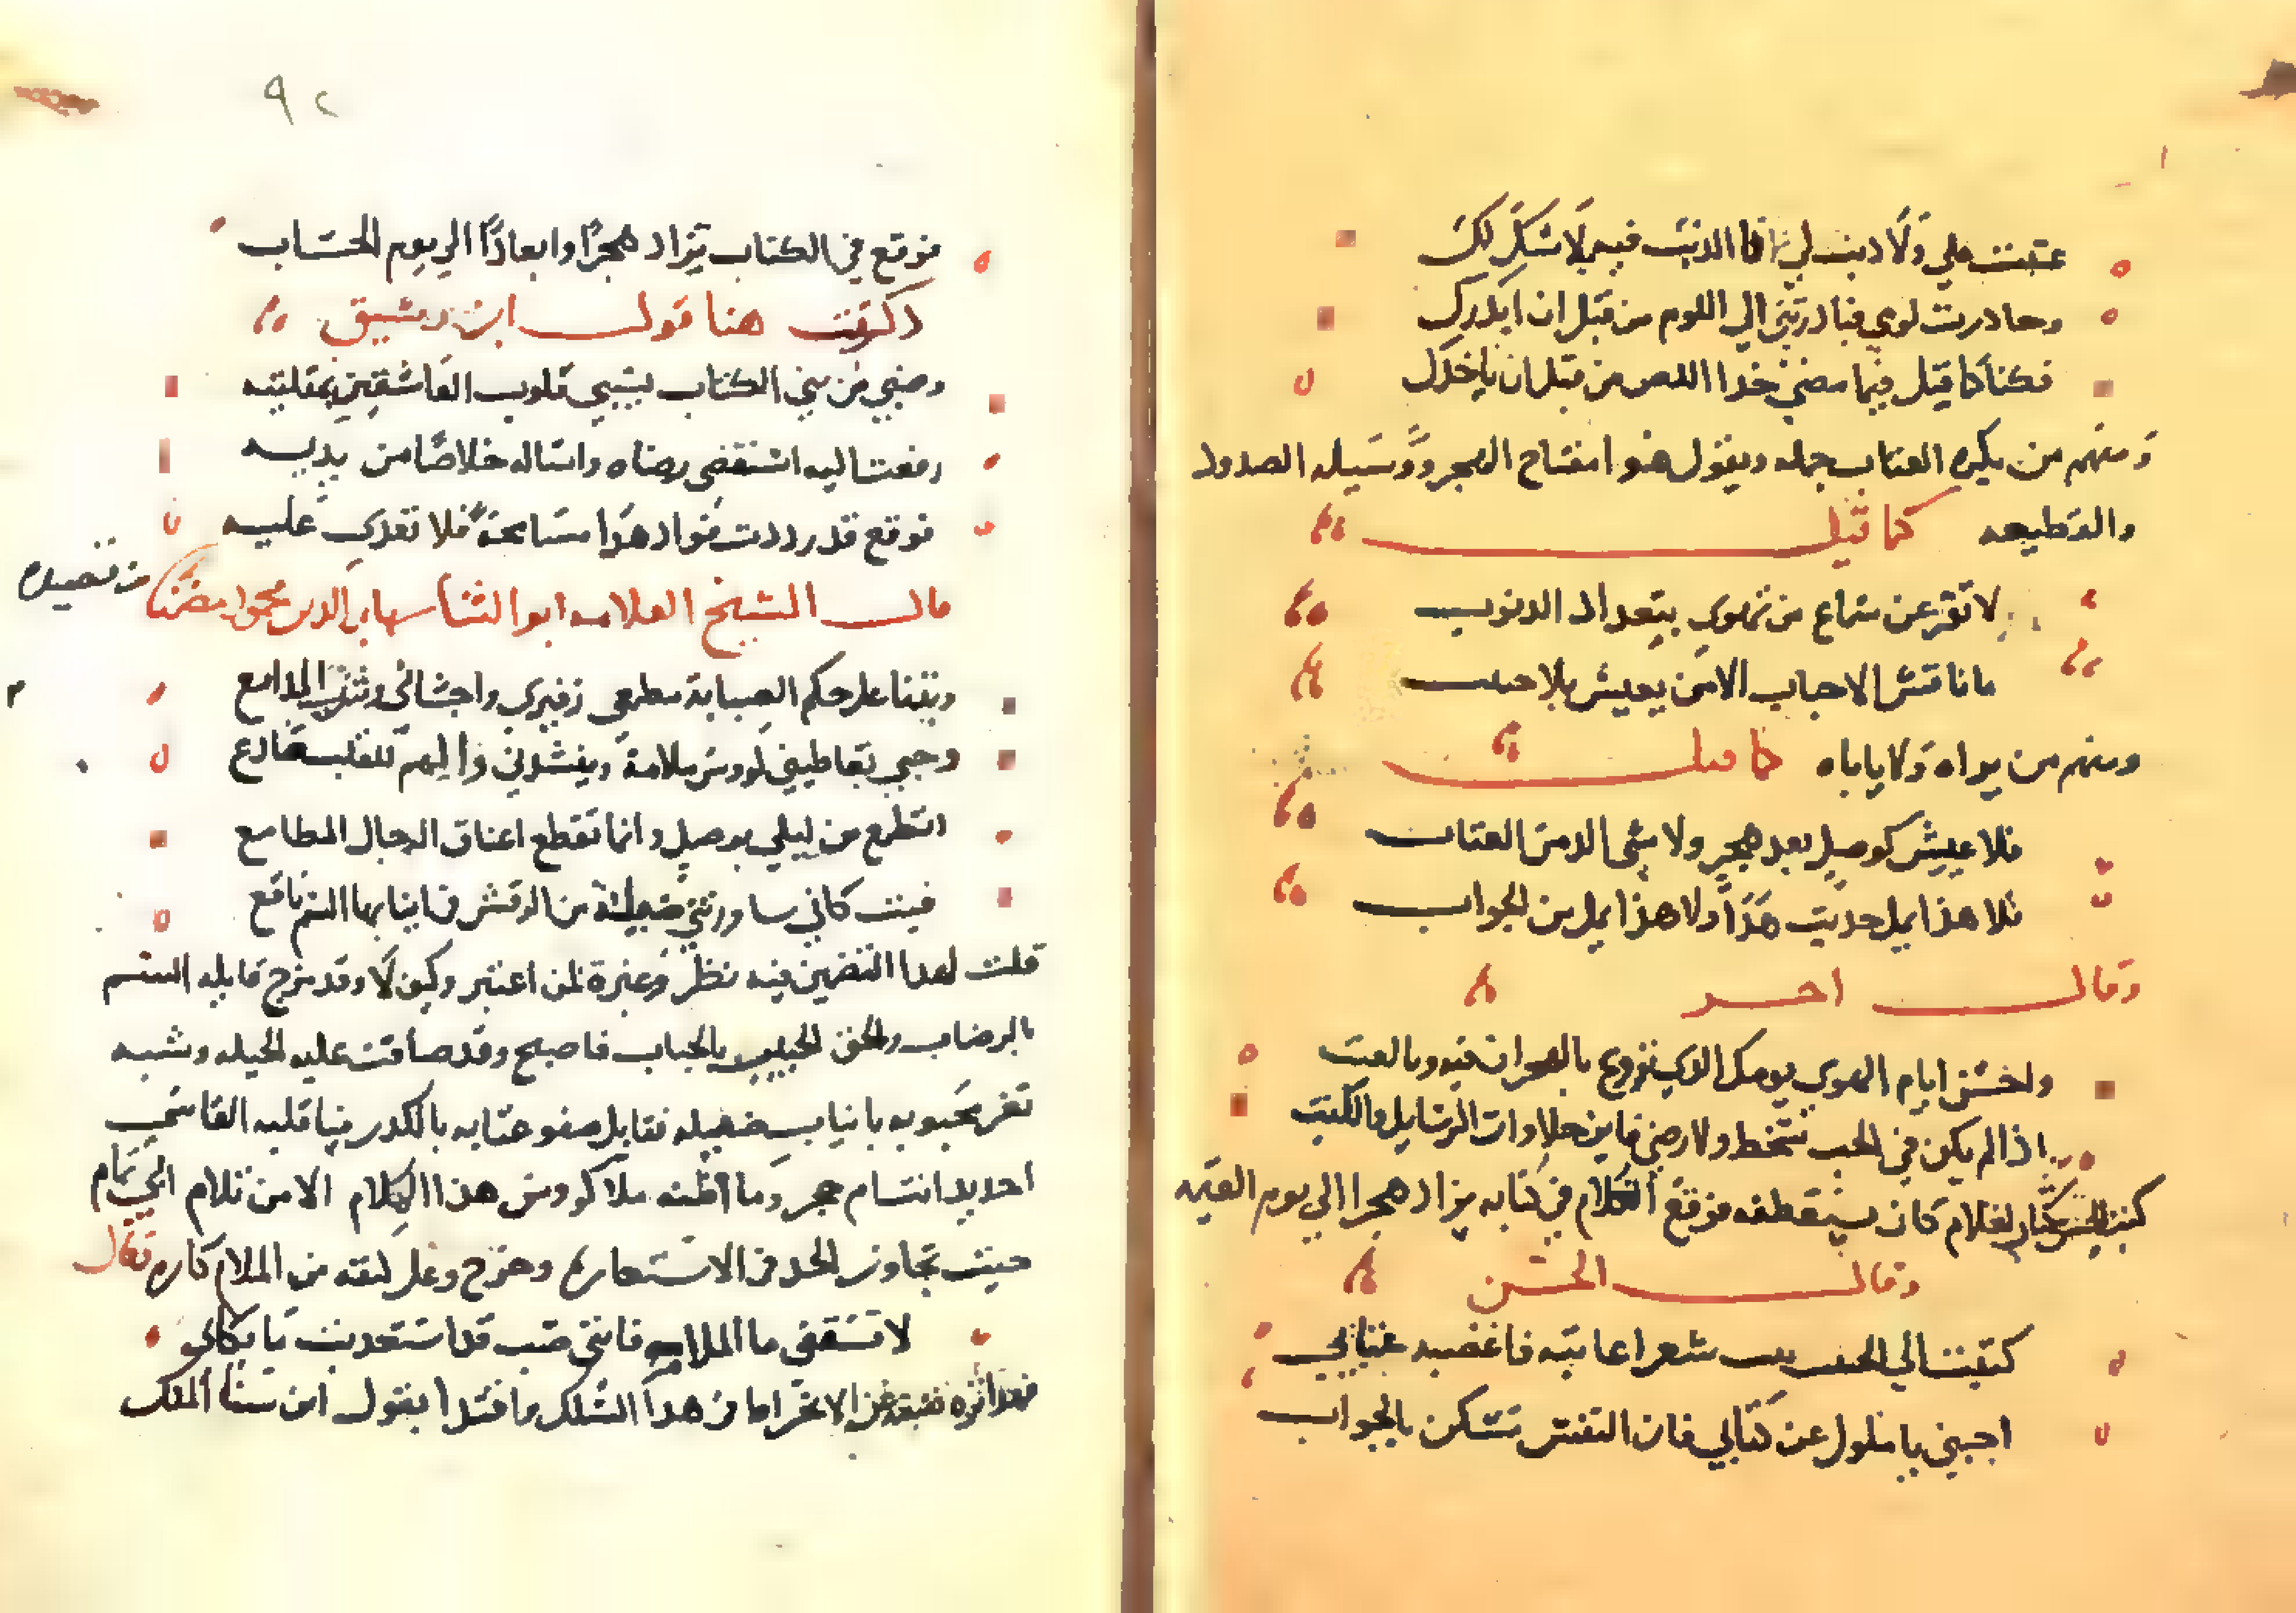 عتبت علي ولا ذنب لي فما الذنب فيه ولا شك لك
وحاذرت لومي فبادرتني الى اللوم من قبل ان ابدرك
فكنا كما قيل فيما مضى خذ اللص من قبل ان ياخذك
ومنهم من يكره العتاب جمله ويقول هو مفتاح الهجر ووسيله الصدود
والقطيعه كما قيل
لا تقرعن سماع من تهوى بتعداد الذنوب
ما ناقش الاحباب الا من يعيش بلا حبيب
ومنهم من يراه ولا ياباه كما قيل
فلا عيش كوصل بعد هجر ولا شي الذ من العتاب
فلا هذا يمل حديث هذا ولا هذا يمل من الجواب
وقال اخر
واحسن ايام الهوى يومك الذي تروع بالهجران فيه وبالعتب
اذا لم يكن في الحب سخط ولا رضى فاين حلاوات الرسايل والكتب
كتب لغلام كان فوقع الغلام في كتابه يزاد هجرا الى يوم القيمه
وقال الحسن
كتبت الى الحبيب شعرا اعاتبه فاغضبه عتابي
اجبني يا ملول عن كتابي فان النفس تسكن بالجواب
٩٢
فوقع في الكتاب يزاد هجرا وابعادا الى يوم الحساب
ذكرت هنا قول ابن رشيق
وظبي من بني الكتاب يسبي قلوب العاشقين بمقلتيه
رفعت اليه استقضي رضاه واساله خلاصا من يديه
فوقع قد رددت فواد هذا مسامحة فلا تعدي عليه
قال الشيخ العلامه ابو الثنا شهاب الدين محمود مضمنا من قصيده
وبتنا على حكم الصبابة مطمعي زفيري واحشائي وشربي المدامع
وحبي يعاطيني كووس ملامة وينشدني والهم للقلب صادع
اتطمع من ليلى بوصل وانما تقطع اعناق الرجال المطامع
فبت كاني ساورتني ضئيلة من الرقش في انيابها السم ناقع
قلت لهذا التضمين فيه نظر وعبرة لمن اعتبر وكيف لا وقد مزج قايله السم
بالرضاب والحق الحبيب بالحباب فاصبح وقد ضاقت عليه الحيله وشبه
ثغر محبوبه بانياب ضئيله فقابل صفو عتابه بالكدر فيا قلبه القاسي
احديد انت ام حجر وما اظنه ملا كووس هذا الكلام الا من كلام ابي تمام
حيث تجاوز الحد في الاستعاره وخرج وغلى ليقه من الملام كاره فقال
لا تسقني ما الملام فانني صب قد استعذبت ما بكائي
من هذا السلك ما قتلا بقول ابن سنا الملك